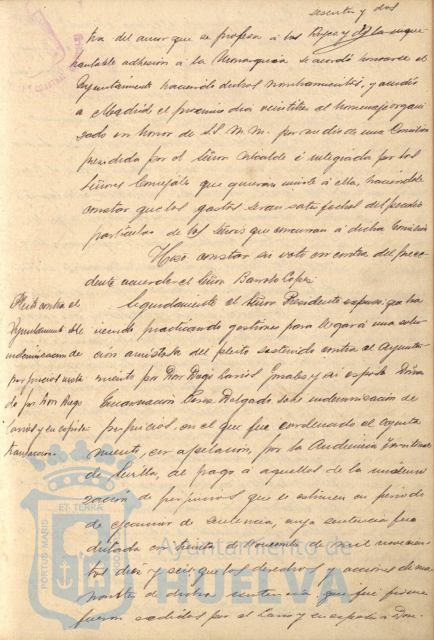 sesenta y dos
tra del amor que se profesa a los Reyes y de la inque-
brantable adhesión a la Monarquia se acordó honrarse el
Ayuntamiento haciendo dichos nombramientos, y acudir
a Madrid el proximo dia veintitres al homenaje organi
zado en honor de SS. M.M. por medio de una Comisión
presidida por el Señor Alcalde é integrada por los
Señores Concejales que quieran unirse a ella, haciendose
constar que los gastos seran satisfechos del peculio
particular de los Señores que concurran a dicha Comisión
Hizo constar su voto en contra del prece
dente acuerdo el Señor Barroto López.
Pleito contra el
Ayuntamiento sobre
indemnizacion de
perjuicios insta
do por Don Hugo
Larios y su esposa
transaccion.
Seguidamente el Señor Presidente expuso que ha
viendo practicando gestiones para llegar á una solu
cion amistosa del pleito sostenido contra el Ayunta-
miento por Don Hugo Larios y su esposa Doña
Encarnación Delgado sobre indemnización de
perjuicios, en el que fue condenado el Ayunta
miento, en apelación, por la Audiencia Territorial
de Sevilla, al pago á aquellos de la indemni
zación de perjuicios que se estimen en periodo
de ejecución de sentencia, cuya sentencia fue
dictada con fecha de de mil novecien
tos diez y seis, que los derechos y acciones
de dicha sentencia que fué
fueron cedidos por el Larios y su esposa a Don
ET TERRÆ
PORTUS MARIS
Ayuntamiento de
HUELVA